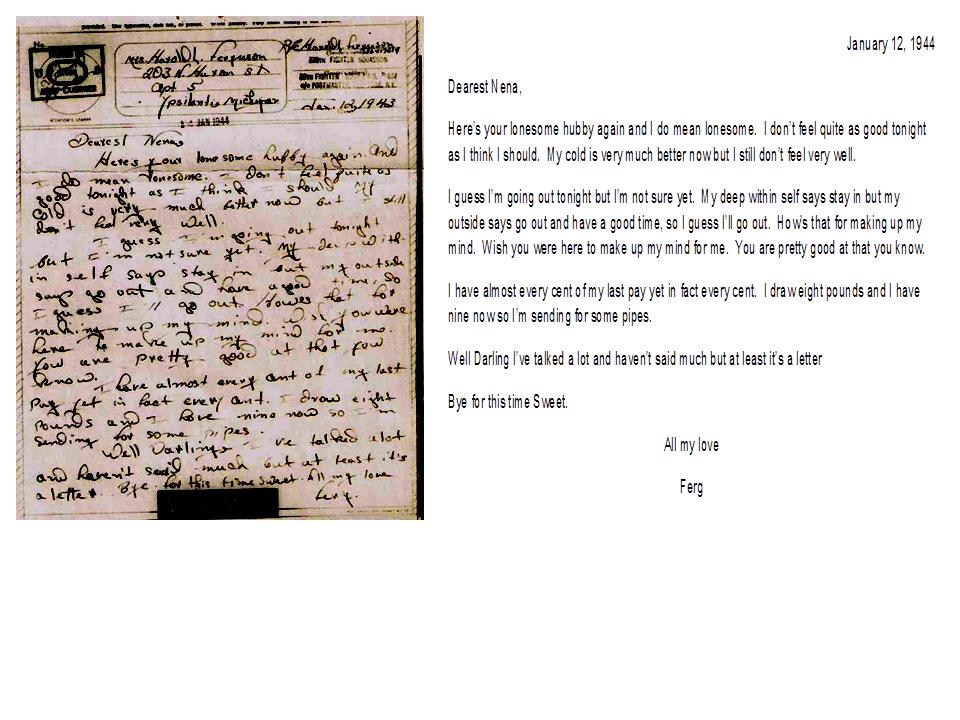 No.
Mrs. Harold L. Ferguson
203 N. Huron St
Apt 5
Ypsilanti Michigan
FIGHTER SQUADRON
FIGHTER
c/o POSTMASTER
Jan. 12, 1943
JAN 1944
Dearest Nena,
Here's your lonesome hubby again and
I do mean lonesome. I don't feel quite as
good tonight as I think I should My
cold is very much better now but I still
don't feel very well.
I guess I'm going out tonight
but I'm not sure yet. My deep with-
in self says stay in but my outside
says go out and have a good time, so
I guess I'll go out. Howes that for
making up my mind. Wish you were
here to make up my mind for me.
You are pretty good at that you
know.
I have almost every cent of my last
pay yet in fact every cent. I draw eight
pounds and I have nine now so I'm
sending for some pipes.
Well Darling I've talked a lot
and haven't said much but at least it's
a letter. Bye for this time sweet. All my love
Ferg.
January 12, 1944
Dearest Nena,
Here's your lonesome hubby again and I do mean lonesome.  I don't feel quite as good tonight
as I think I should.  My cold is very much better now but I still don't feel very well.
I guess I'm going out tonight but I'm not sure yet.  My deep within self says stay in but my
outside says go out and have a good time, so I guess I'll go out.  How's that for making up my
mind.  Wish you were here to make up my mind for me.  You are pretty good at that you know.
I have almost every cent of my last pay yet in fact every cent.  I draw eight pounds and I have
nine now so I'm sending for some pipes.
Well Darling I've talked a lot and haven't said much but at least it's a letter
Bye for this time Sweet.
All my love
Ferg